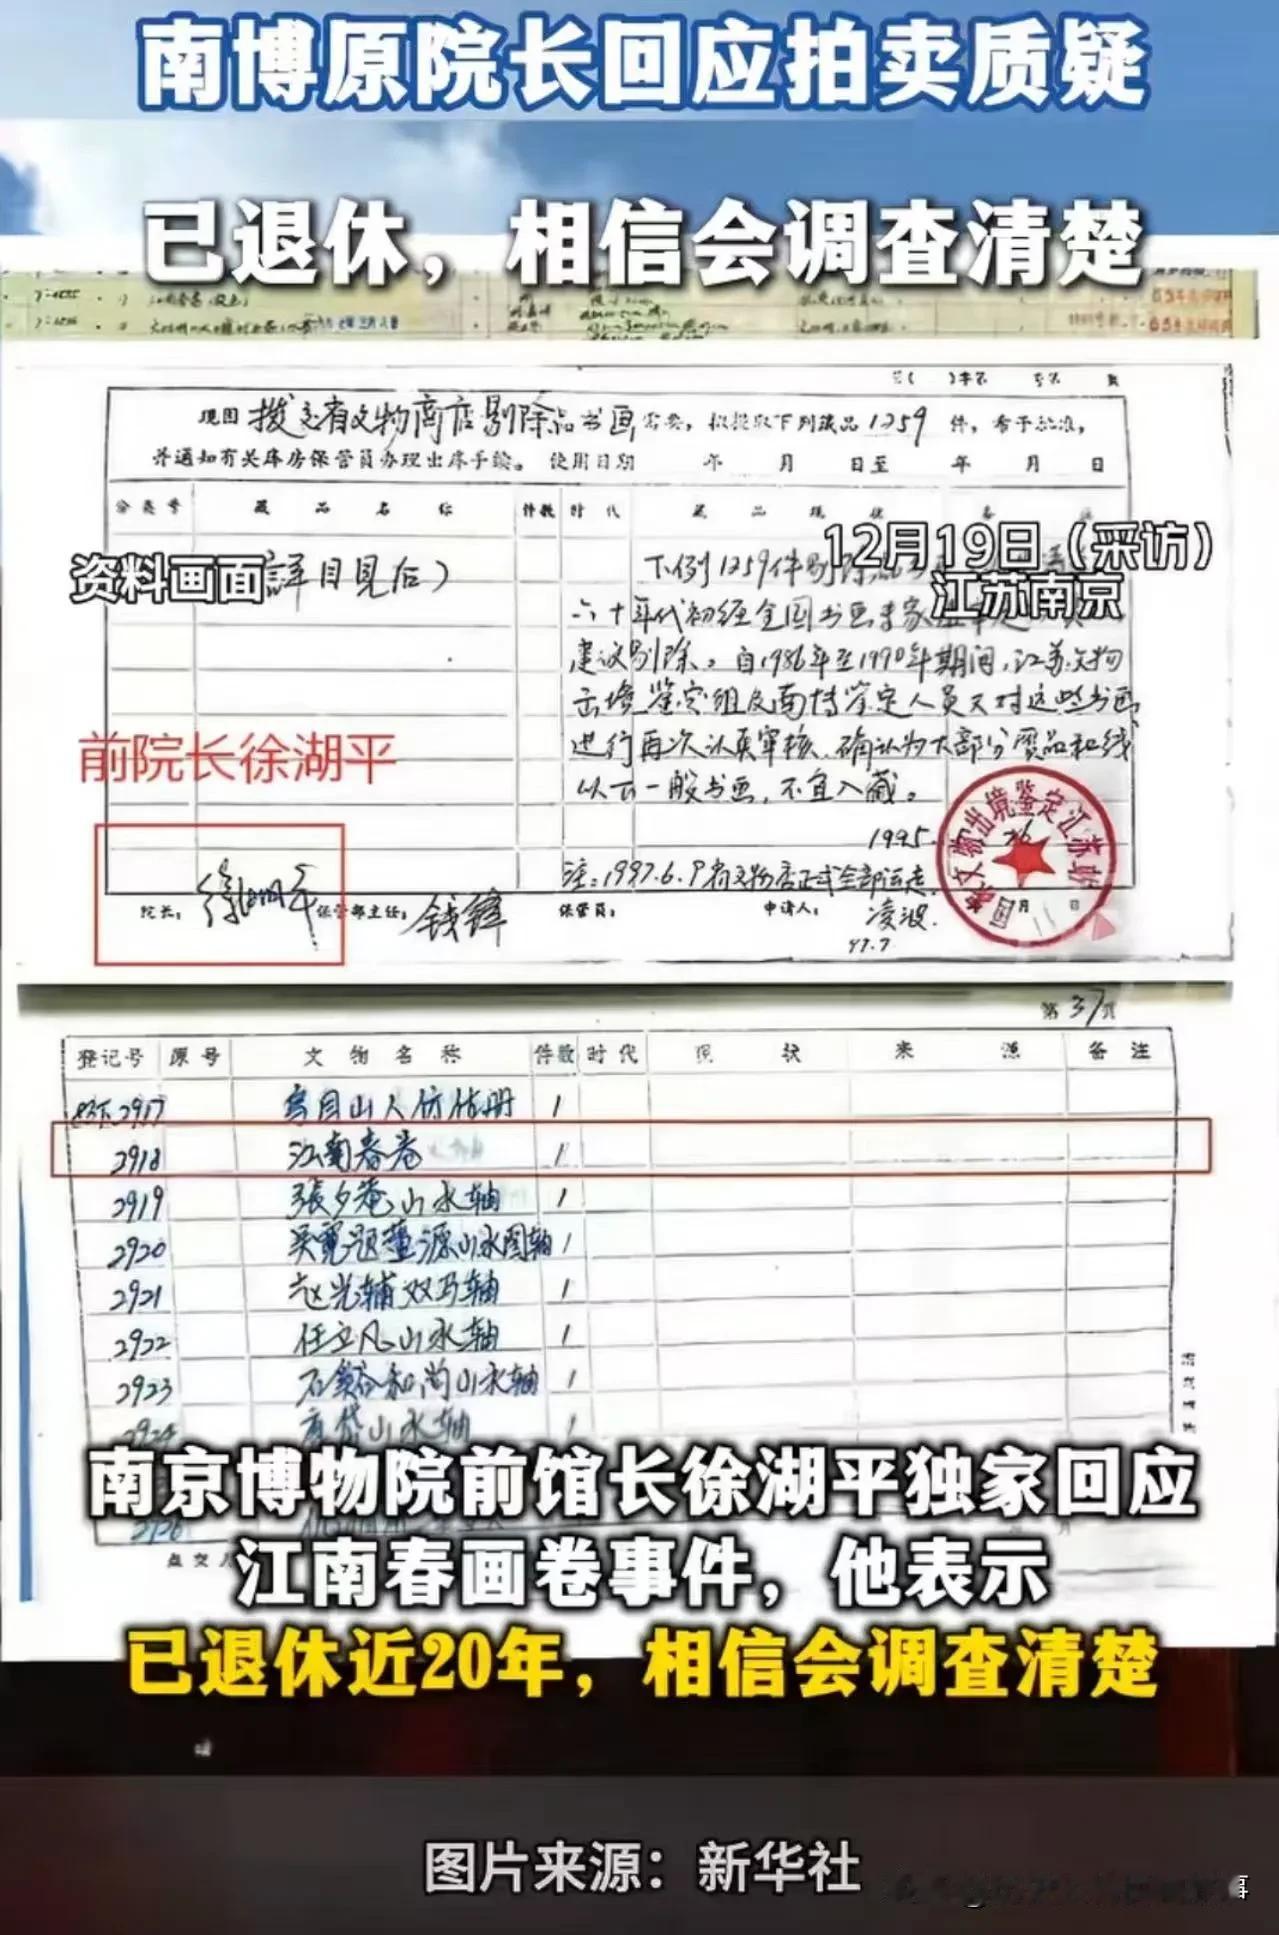 南博原院长回应拍卖质疑
已退休，相信会调查清楚
现因 拨交省文物商店剔除品书画 需要，拟提取下列藏品 1259 件，希予批准，
并通知有关库房保管员办理出库手续。 使用日期 年 月 日至 年 月 日
分类号 藏品名称 件数 时代 藏品现状
12月19日（采访）
江苏南京
资料画面
詳目见后）
下例1259件剔除
六十年代初经全国书画专家
建议剔除。自1986年至1990年期间，江苏文物
出境鉴定组及南博鉴定人员又对这些书画
进行再次认真审核，确认为大部分
以下一般书画，不宜入藏。
1995.
注：1997.6.9省文物店正式全部运走
前院长徐湖平
院长： 徐湖平 保管部主任： 钱锋 保管员： 申请人： 凌波
97.7
文物出境鉴定江苏站
第37页
登记号 原号 文物名称 件数 时代 现状 来源 备注
2917 1
2918 江南春卷 1
2919 張夕菴山水轴 1
2920 吴宽题董源山水图轴 1
2921 赵光辅双马轴 1
2922 任立凡山水轴 1
2923 石谿和尚山水轴 1
2924 高岱山水轴
南京博物院前馆长徐湖平独家回应
江南春画卷事件，他表示
已退休近20年，相信会调查清楚
图片来源：新华社